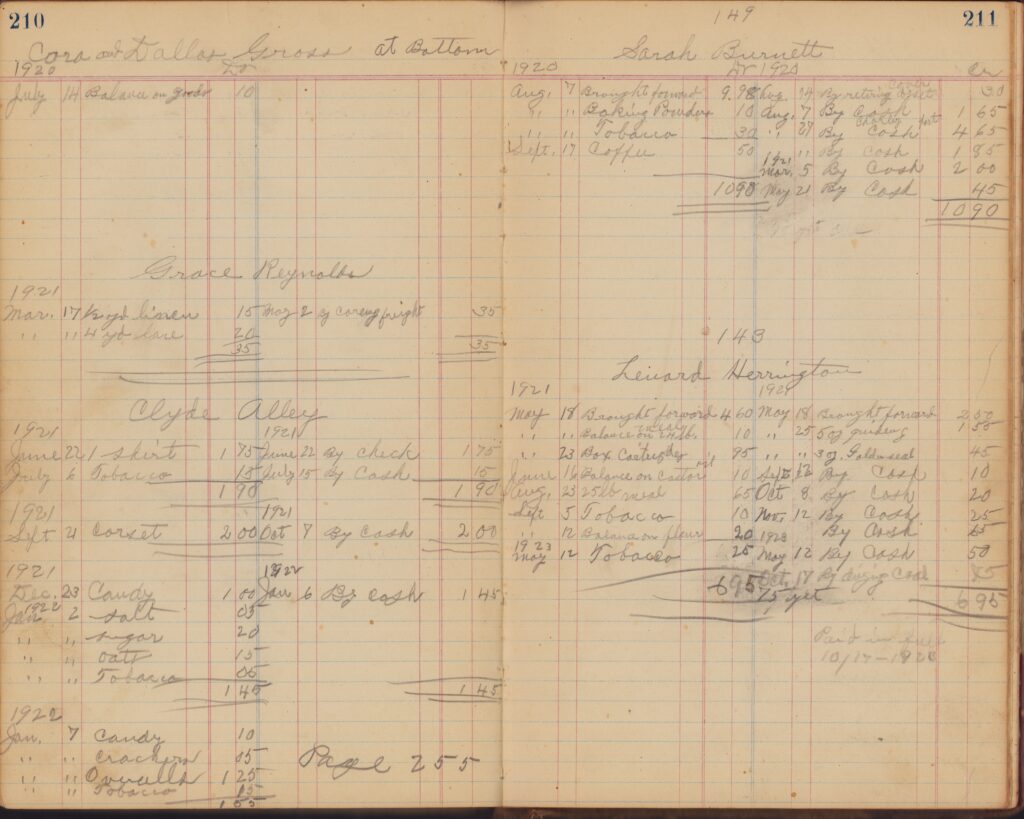 210
Cora and Dallas Gross at Bottom
1920 Dr
July 14 Balance on goods 10
Grace Reynolds
1921
Mar. 17 1/2 yd linen 15 May 2 by careing freight 35
" " 4 yd lace 20
35 35
Clyde Alley
1921 1921
June 22 1 shirt 1 75 June 22 By check 1 75
July 6 Tobacco 15 July 15 By Cash 15
1 90 1 90
1921 1921
Sept 4 Corset 2 00 Oct 8 By Cash 2 00
1921 1922
Dec. 23 Candy 1 00 Jan 6 By Cash 1 45
1922
Jan 2 salt 05
" " sugar 20
" " oats 15
" " Tobacco 05
1 45 1 45
1922
Jan. 7 Candy 10
" " Crackers 05
" " Overalls 1 25
" " Tobacco 15
1 55
Page 255
149
211
Sarah Burnett
1920 Dr 1920 Cr
Aug. 7 Brought forward 9.98 Aug. 14 By 30
" " Baking Powder 10 Aug. 7 By Cash 1 65
" " Tobacco 30 " 27 By Cash 4 65
Sept. 17 Coffee 50 " " By Cash 1 85
1921
Mar. 5 By Cash 2 00
10 90 May 21 By Cash 45
10 90
143
Lenard Herrington
1921 1921
May 18 Brought forward 4 60 May 18 Brought forward 2 50
" " Balance on 10 " 25 5 oz 1 50
" 23 Box Catriges 95 " " 3 oz. Goldenseal 45
June 16 Balance on Castor oil 10 Sept 12 By Cash 10
Aug. 23 25 lb meal 65 Oct 8 By Cash 20
Sept 5 Tobacco 10 Nov. 12 By Cash 25
" 12 Balance on flour 20 1923 By Cash
1923
May 12 Tobacco 25 May 12 By Cash 50
6 95 Oct. 18 By diging Coal 75
75 yet 6 95
Paid in full